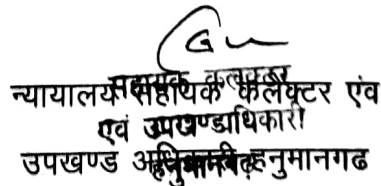 सहायक कलक्टर
न्यायालय सहायक कलक्टर एंव
एवं उपखण्डाधिकारी
उपखण्ड अधिकारी हनुमानगढ
हनुमानगढ़